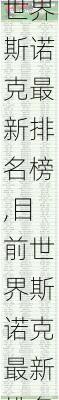 世界
斯诺
克最
新排
名榜
,目
前世
界斯
诺克
最新